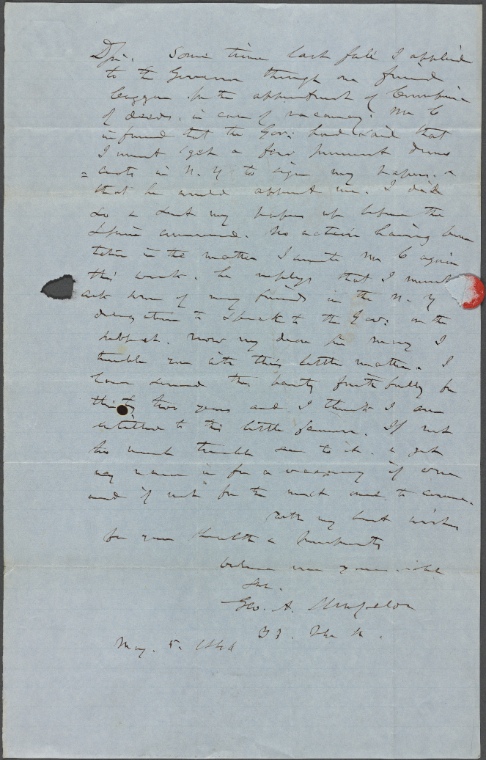 Dr Sir. Some time last fall I applied
to the Governor through my friend
for the appointment of Commissioner
of deeds, in case of vacancy. Mr C
informed that the Gov: had said that
I must get a few prominent Demo
= crats in N. Y to sign my papers, &
that he would appoint me. I did
so & sent my papers up before the
commenced. No action having been
taken in the matter I wrote Mr C again
this week. he replies that I must
ask some of my friends in the N. Y
delegation to speak to the Gov: on the
subject. Now my dear Sir may I
trouble you with this little matter. I
have served the party faithfully for
thirty two years and I think I am
entitled to this little favour. If not
too much trouble see to it. & get
my name in for a vacancy if one
and if not for the next one to come.
With my best wishes
for your health & prosperity
believe me yours
Geo. A.
May. 5.